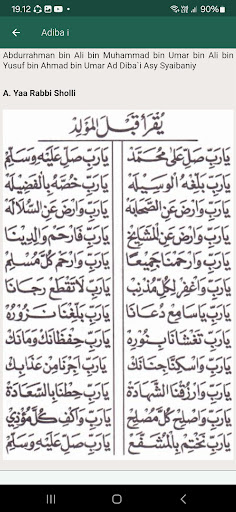 19.12
90%
Adiba i
Abdurrahman bin Ali bin Muhammad bin Umar bin Ali bin
Yusuf bin Ahmad bin Umar Ad Diba`i Asy Syaibaniy
A. Yaa Rabbi Sholli
يُقْرَأُ قَبْلَ الْمَوْلِدِ
يَارَبِّ صَلِّ عَلَى مُحَمَّدْ يَارَبِّ صَلِّ عَلَيْهِ وَسَلِّمْ
يَارَبِّ بَلِّغْهُ الْوَسِيْلَهْ يَارَبِّ خُصَّهُ بِالْفَضِيْلَهْ
يَارَبِّ وَارْضَ عَنِ الصَّحَابَهْ يَارَبِّ وَارْضَ عَنِ السُّلَالَهْ
يَارَبِّ وَارْضَ عَنِ الْمَشَايِخْ يَارَبِّ فَارْحَمْ وَالِدِيْنَا
يَارَبِّ وَارْحَمْنَا جَمِيْعًا يَارَبِّ وَارْحَمْ كُلَّ مُسْلِمْ
يَارَبِّ وَاغْفِرْ لِكُلِّ مُذْنِبْ يَارَبِّ لَاتَقْطَعْ رَجَانَا
يَارَبِّ يَاسَامِعْ دُعَانَا يَارَبِّ بَلِّغْنَا نَزُوْرُهْ
يَارَبِّ تَغْشَانَا بِنُوْرِهْ يَارَبِّ حِفْظَانَكْ وَامَانَكْ
يَارَبِّ وَاسْكِنَّا جِنَانَكْ يَارَبِّ اَجِرْنَا مِنْ عَذَابِكْ
يَارَبِّ وَارْزُقْنَا الشَّهَادَهْ يَارَبِّ حِطْنَا بِالسَّعَادَهْ
يَارَبِّ وَاصْلِحْ كُلَّ مُصْلِحْ يَارَبِّ وَاكْفِ كُلَّ مُؤْذِيْ
يَارَبِّ نَخْتِمْ بِالْمُشَفَّعْ يَارَبِّ صَلِّ عَلَيْهِ وَسَلِّمْ